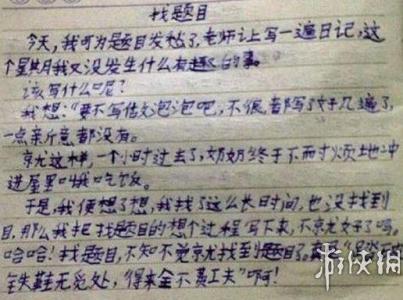 找题目
今天,我可为题目发愁了,老师让写一遍日记,这
个星期我又没发生什么有趣的事。
该写什么呢?
我想:“要不写信吹泡泡吧,不很都写了好几遍了,
一点新意都没有。
就这样,一个小时过去了,奶奶终于不耐烦地冲
进屋里叫我吃饭。
于是,我便想了想,我找了这么长时间,也没找到
目,那么我把找题目的想个过程写下来,不就好了吗。
哈哈!找题目,不知不觉就找到题目了。“踏破
铁鞋无觅处,“得来全不费工夫”啊!
游侠网